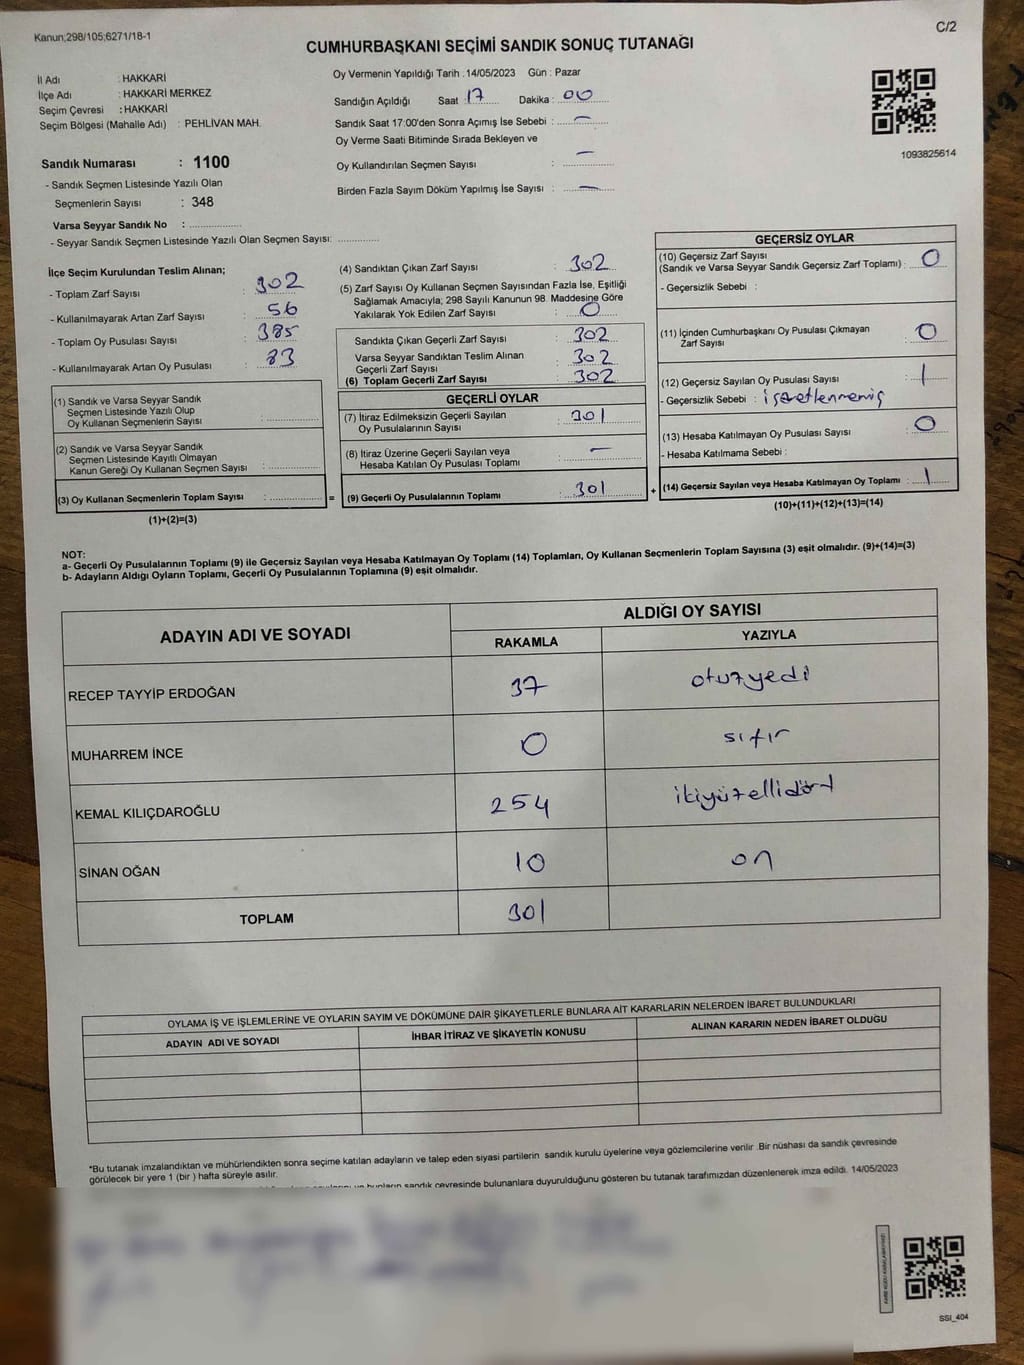 Kanun;298/105;6271/18-1
C/2
CUMHURBAŞKANI SEÇİMİ SANDIK SONUÇ TUTANAĞI
İl Adı : HAKKARİ
İlçe Adı : HAKKARİ MERKEZ
Seçim Çevresi : HAKKARİ
Seçim Bölgesi (Mahalle Adı) : PEHLİVAN MAH.
Sandık Numarası : 1100
- Sandık Seçmen Listesinde Yazılı Olan
Seçmenlerin Sayısı : 348
Varsa Seyyar Sandık No : ................
- Seyyar Sandık Seçmen Listesinde Yazılı Olan Seçmen Sayısı: ............
Oy Vermenin Yapıldığı Tarih : 14/05/2023 Gün : Pazar
Sandığın Açıldığı Saat : 17 Dakika : 00
Sandık Saat 17:00'den Sonra Açımış İse Sebebi : —
Oy Verme Saati Bitiminde Sırada Bekleyen ve
Oy Kullandırılan Seçmen Sayısı : —
Birden Fazla Sayım Döküm Yapılmış İse Sayısı : —
1093825614
İlçe Seçim Kurulundan Teslim Alınan;
- Toplam Zarf Sayısı : 302
- Kullanılmayarak Artan Zarf Sayısı : 56
- Toplam Oy Pusulası Sayısı : 385
- Kullanılmayarak Artan Oy Pusulası : 83
(1) Sandık ve Varsa Seyyar Sandık
Seçmen Listesinde Yazılı Olup
Oy Kullanan Seçmenlerin Sayısı : ............
(2) Sandık ve Varsa Seyyar Sandık
Seçmen Listesinde Kayıtlı Olmayan
Kanun Gereği Oy Kullanan Seçmen Sayısı : ............
(3) Oy Kullanan Seçmenlerin Toplam Sayısı : ............
(1)+(2)=(3)
=
(4) Sandıktan Çıkan Zarf Sayısı : 302
(5) Zarf Sayısı Oy Kullanan Seçmen Sayısından Fazla İse, Eşitliği
Sağlamak Amacıyla; 298 Sayılı Kanunun 98. Maddesine Göre
Yakılarak Yok Edilen Zarf Sayısı : 0
Sandıkta Çıkan Geçerli Zarf Sayısı : 302
Varsa Seyyar Sandıktan Teslim Alınan
Geçerli Zarf Sayısı : 302
(6) Toplam Geçerli Zarf Sayısı : 302
GEÇERLİ OYLAR
(7) İtiraz Edilmeksizin Geçerli Sayılan
Oy Pusulalarının Sayısı : 301
(8) İtiraz Üzerine Geçerli Sayılan veya
Hesaba Katılan Oy Pusulası Toplamı : —
(9) Geçerli Oy Pusulalarının Toplamı : 301
+
GEÇERSİZ OYLAR
(10) Geçersiz Zarf Sayısı
(Sandık ve Varsa Seyyar Sandık Geçersiz Zarf Toplamı) : 0
- Geçersizlik Sebebi :
(11) İçinden Cumhurbaşkanı Oy Pusulası Çıkmayan
Zarf Sayısı : 0
(12) Geçersiz Sayılan Oy Pusulası Sayısı : 1
- Geçersizlik Sebebi : işaretlenmemiş
(13) Hesaba Katılmayan Oy Pusulası Sayısı : 0
- Hesaba Katılmama Sebebi :
(14) Geçersiz Sayılan veya Hesaba Katılmayan Oy Toplamı : 1
(10)+(11)+(12)+(13)=(14)
NOT:
a- Geçerli Oy Pusulalarının Toplamı (9) ile Geçersiz Sayılan veya Hesaba Katılmayan Oy Toplamı (14) Toplamları, Oy Kullanan Seçmenlerin Toplam Sayısına (3) eşit olmalıdır. (9)+(14)=(3)
b- Adayların Aldığı Oyların Toplamı, Geçerli Oy Pusulalarının Toplamına (9) eşit olmalıdır.
ADAYIN ADI VE SOYADI
ALDIĞI OY SAYISI
RAKAMLA YAZIYLA
RECEP TAYYİP ERDOĞAN 37 otuzyedi
MUHARREM İNCE 0 sıfır
KEMAL KILIÇDAROĞLU 254 ikiyüzellidört
SİNAN OĞAN 10 on
TOPLAM 301
OYLAMA İŞ VE İŞLEMLERİNE VE OYLARIN SAYIM VE DÖKÜMÜNE DAİR ŞİKAYETLERLE BUNLARA AİT KARARLARIN NELERDEN İBARET BULUNDUKLARI
ADAYIN ADI VE SOYADI İHBAR İTİRAZ VE ŞİKAYETİN KONUSU ALINAN KARARIN NEDEN İBARET OLDUĞU
*Bu tutanak imzalandıktan ve mühürlendikten sonra seçime katılan adayların ve talep eden siyasi partilerin sandık kurulu üyelerine veya gözlemcilerine verilir. Bir nüshası da sandık çevresinde
görülecek bir yere 1 (bir ) hafta süreyle asılır.
bunların sandık çevresinde bulunanlara duyurulduğunu gösteren bu tutanak tarafımızdan düzenlenerek imza edildi. 14/05/2023
SSI_404